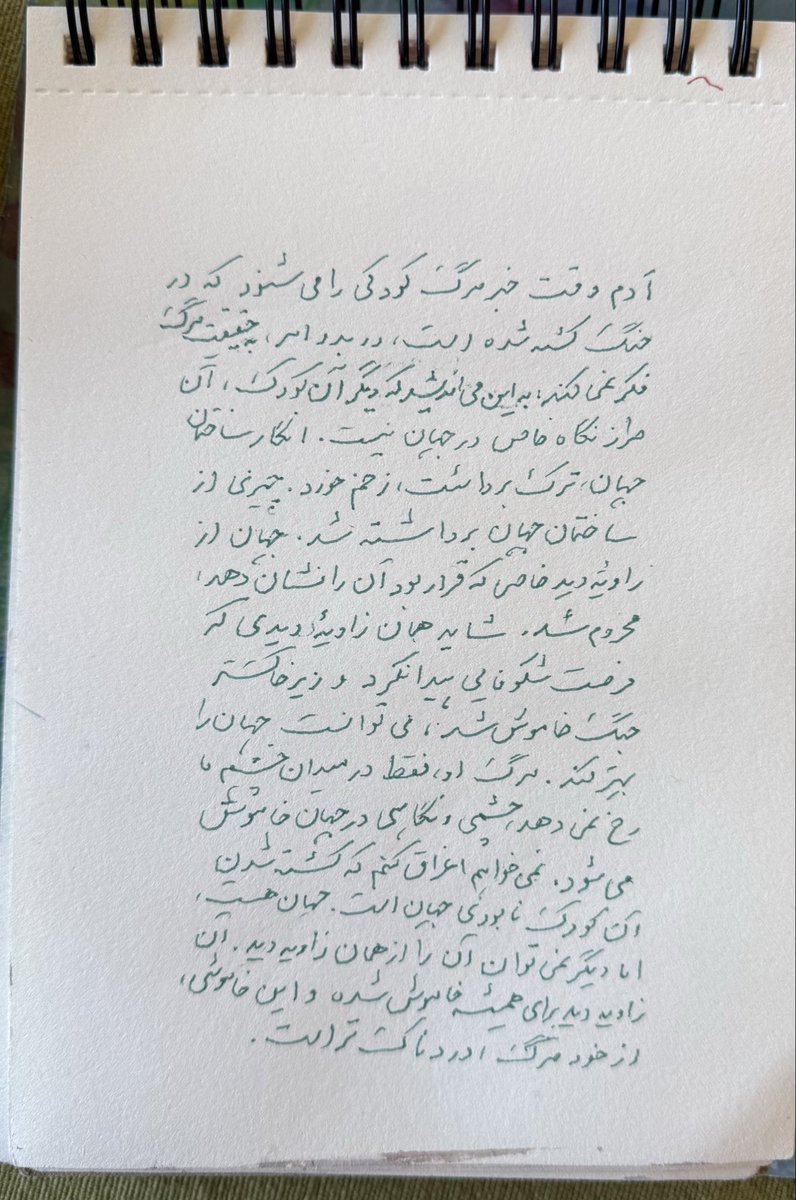 آدم وقت خبر مرگ کودکی را می شنود که در
جنگ کشته شده است، در بدو امر، به حقیقت مرگ
فکر نمی کند؛ به این می اندیشد که دیگر آن کودک، آن
طراز نگاه خاص در جهان نیست. انگار ساختمان
جهان، ترک برداشت، زخم خورد. چیزی از
ساختمان جهان برداشته شد. جهان از
زاویهٔ دید خاصی که قرار بود آن را نشان دهد،
محروم شد. شاید همان زاویهٔ دیدی که
فرصت شکوفایی پیدا نکرد و زیر خاکستر
جنگ خاموش شد، می توانست جهان را
بهتر کند. مرگ او، فقط در میدان چشم ما
رخ نمی دهد، چشمی و نگاهی در جهان خاموش
می شود. نمی خواهم اغراق کنم که کشته شدن
آن کودک نابودی جهان است. جهان هست،
اما دیگر نمی توان آن را از همان زاویه دید. آن
زاویه دید برای همیشه خاموش شده و این خاموشی،
از خود مرگ دردناک تر است.